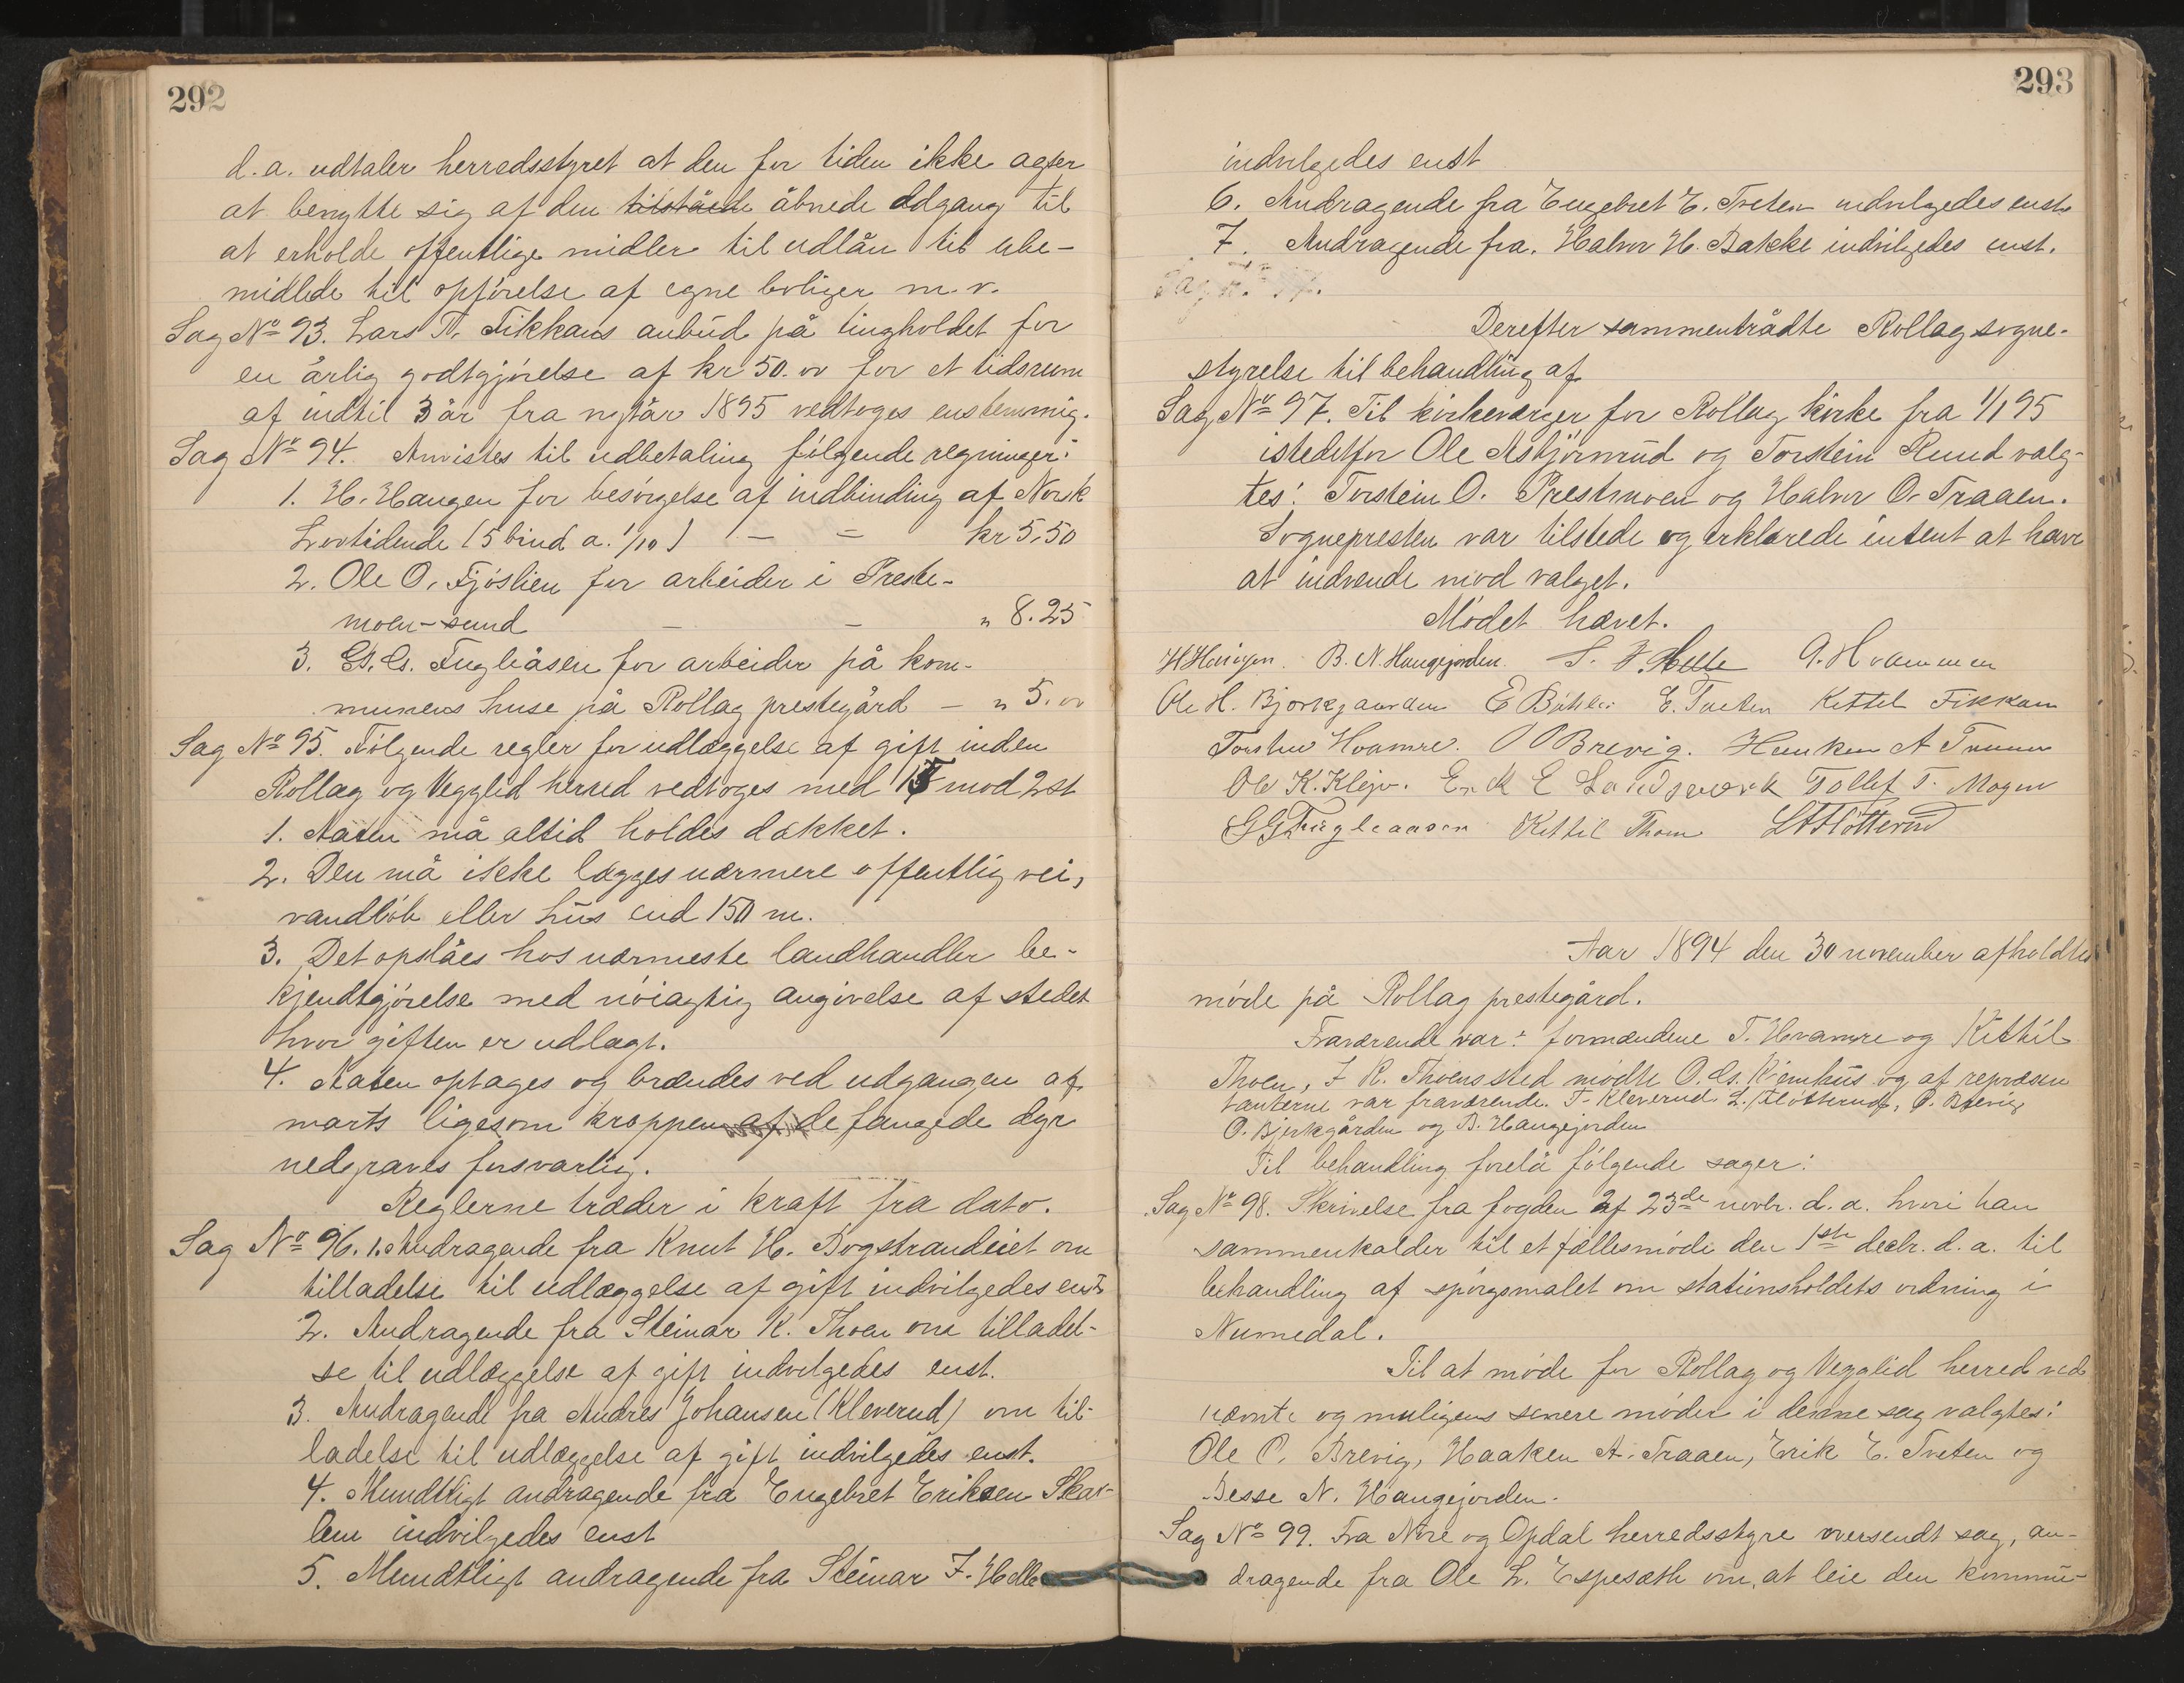 292
d. a. udtaler herredsstyret at den for tiden ikke agter
at benytte sig af den tilståede åbnede adgang til
at erholde offentlige midler til udlån til ube-
midlede til opførelse af egne boliger m. v.
Sag No 93. Lars T. Fikkans anbud på tingholdet for
en årlig godtgjørelse af kr 50.00 for et tidsrum
af indtil 3 år fra nytår 1895 vedtoges enstemmig.
Sag No 94. Anvistes til udbetaling følgende regninger:
1. H. Haugen for besørgelse af indbinding af Norsk
Lovtidende (5 bind a. 1/10) - - kr 5,50
2. Ole O. Fjøslien for arbeider i Preste-
moen-sund - - " 8.25
3. G. G. Fugleåsen for arbeider på kom-
munens huse på Rollag prestegård - " 5.00
Sag No 95. Følgende regler for udlæggelse af gift inden
Rollag og Vegglid herred vedtoges med 15 mod 2 st
1. Aaten må altid holdes dækket.
2. Den må ikke lægges nærmere offentlig vei,
vandløb eller hus end 150 m.
3. Det opslåes hos nærmeste landhandler be-
kjendtgjørelse med nøiagtig angivelse af stedet
hvor giften er udlagt.
4. Aaten optages og brændes ved udgangen af
marts ligesom kroppen af de fangede dyr
nedgraves forsvarlig.
Reglerne træder i kraft fra dato.
Sag No 96. 1. Andragende fra Knut H. Bogstrandeiet om
tilladelse til udlæggelse af gift indvilgedes enst
2. Andragende fra Steinar K. Thoen om tilladel-
se til udlæggelse af gift indvilgedes enst.
3. Andragende fra Andres Johansen (Kleverud) om til-
ladelse til udlæggelse af gift indvilgedes enst.
4. Mundtligt andragende fra Engebret Eriksen Skar-
lem indvilgedes enst
5. Mundtligt andragende fra Steinar F. Helle
293
indvilgedes enst
6. Andragende fra Engebret E. Tveten indvilgedes enst
7. Andragende fra. Halvor H. Bakke indvilgedes enst.
Derefter sammentrådte Rollag sogne-
styrelse til behandling af
Sag No 97. Til kirkeværger for Rollag kirke fra 1/1 95
istedetfor Ole Asbjørnrud og Torstein Ruud valg-
tes: Torstein O. Prestmoen og Halvor O. Traaen.
Sognepresten var tilstede og erklærede intent at have
at indvende mod valget.
Mødet hævet.
H Haugen. B. N. Haugejorden. S. F. Helle A. Hvammen
Ole H. Bjørkgaarden E Bøhler E. Tveten Kittil Fikkan
Torsten Hvamre. O O Brevig. Haaken A Traaen
Ole K. Klejv. Erik E Landsverk Tollef T. Mogen
G G Fugleaasen Kittil Thoen L A Fløtterud
Aar 1894 den 30 november afholdtes
møde på Rollag prestegård.
Fraværende var: formændene T. Hvamre og Kittil
Thoen, I K. Thoens sted mødte O. G. Kjemhus og af repræsen
tanterne var fraværende. T. Kleverud L. Fløtterud, O. Brevig
O. Bjerkgården og B. Haugejorden
Til behandling forelå følgende sager:
Sag No 98. Skrivelse fra fogden af 23de novbr. d. a. hvori han
sammenkalder til et fællesmøde den 1ste decbr. d. a. til
behandling af spørgsmalet om stationsholdets ordning i
Numedal.
Til at møde for Rollag og Vegglid herred ved
nævnte og muligens senere møder i denne sag valgtes:
Ole O. Brevig, Haaken A. Traaen, Erik E. Tveten og
Besse N. Haugejorden.
Sag No 99. Fra Nore og Opdal herredsstyre oversendt sag, an-
dragende fra Ole L. Espeseth om, at leie den kommu-